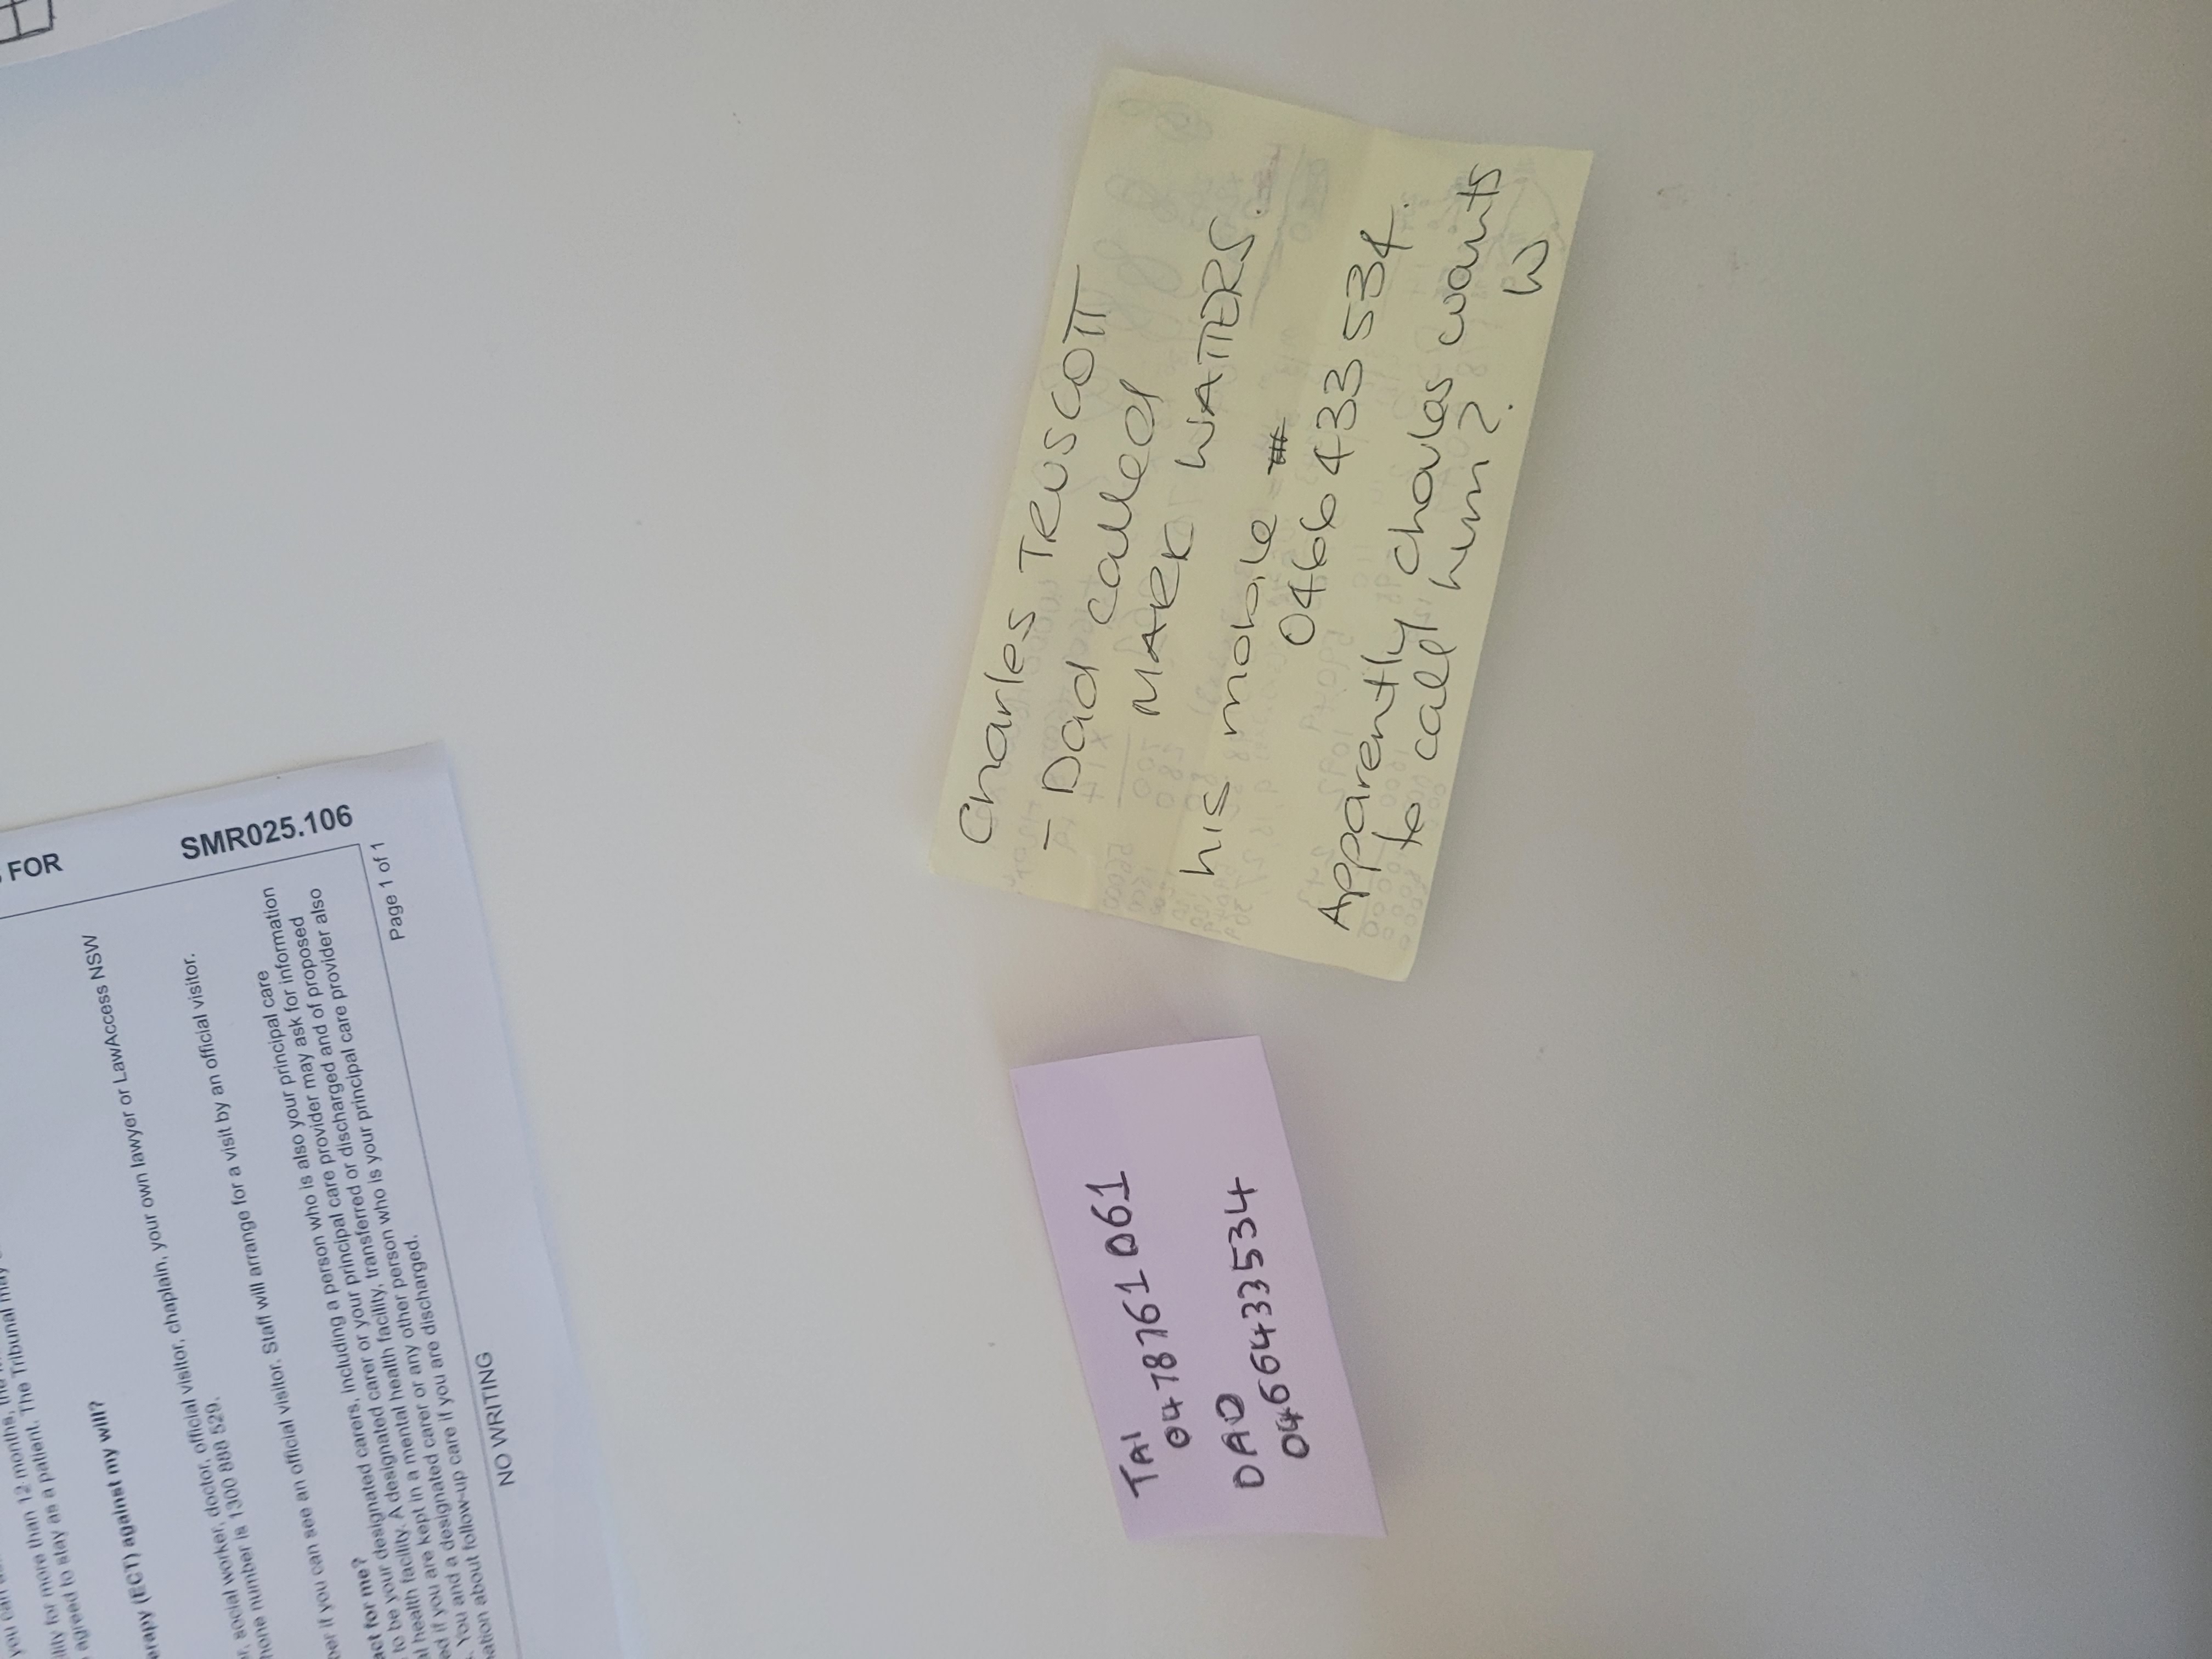 you can
ility for more than 12 months, the
agreed to stay as a patient. The Tribunal may
erapy (ECT) against my will?
r, social worker, doctor, official visitor, chaplain, your own lawyer or LawAccess NSW
hone number is 1300 888 529.
ber if you can see an official visitor. Staff will arrange for a visit by an official visitor.
act for me?
to be your designated carers, including a person who is also your principal care
al health facility. A designated carer or your principal care provider may ask for information
ed if you are kept in a mental health facility, transferred or discharged and of proposed
. You and a designated carer or any other person who is your principal care provider also
ation about follow-up care if you are discharged.
Page 1 of 1
NO WRITING
FOR
SMR025.106
TAI
0478761061
DAD
0466433534
Charles TRUSCOTT
- Dad called
MARK WATTERS.
his mobile
0466 433 534.
Apparently Charles wants
to call him?
W